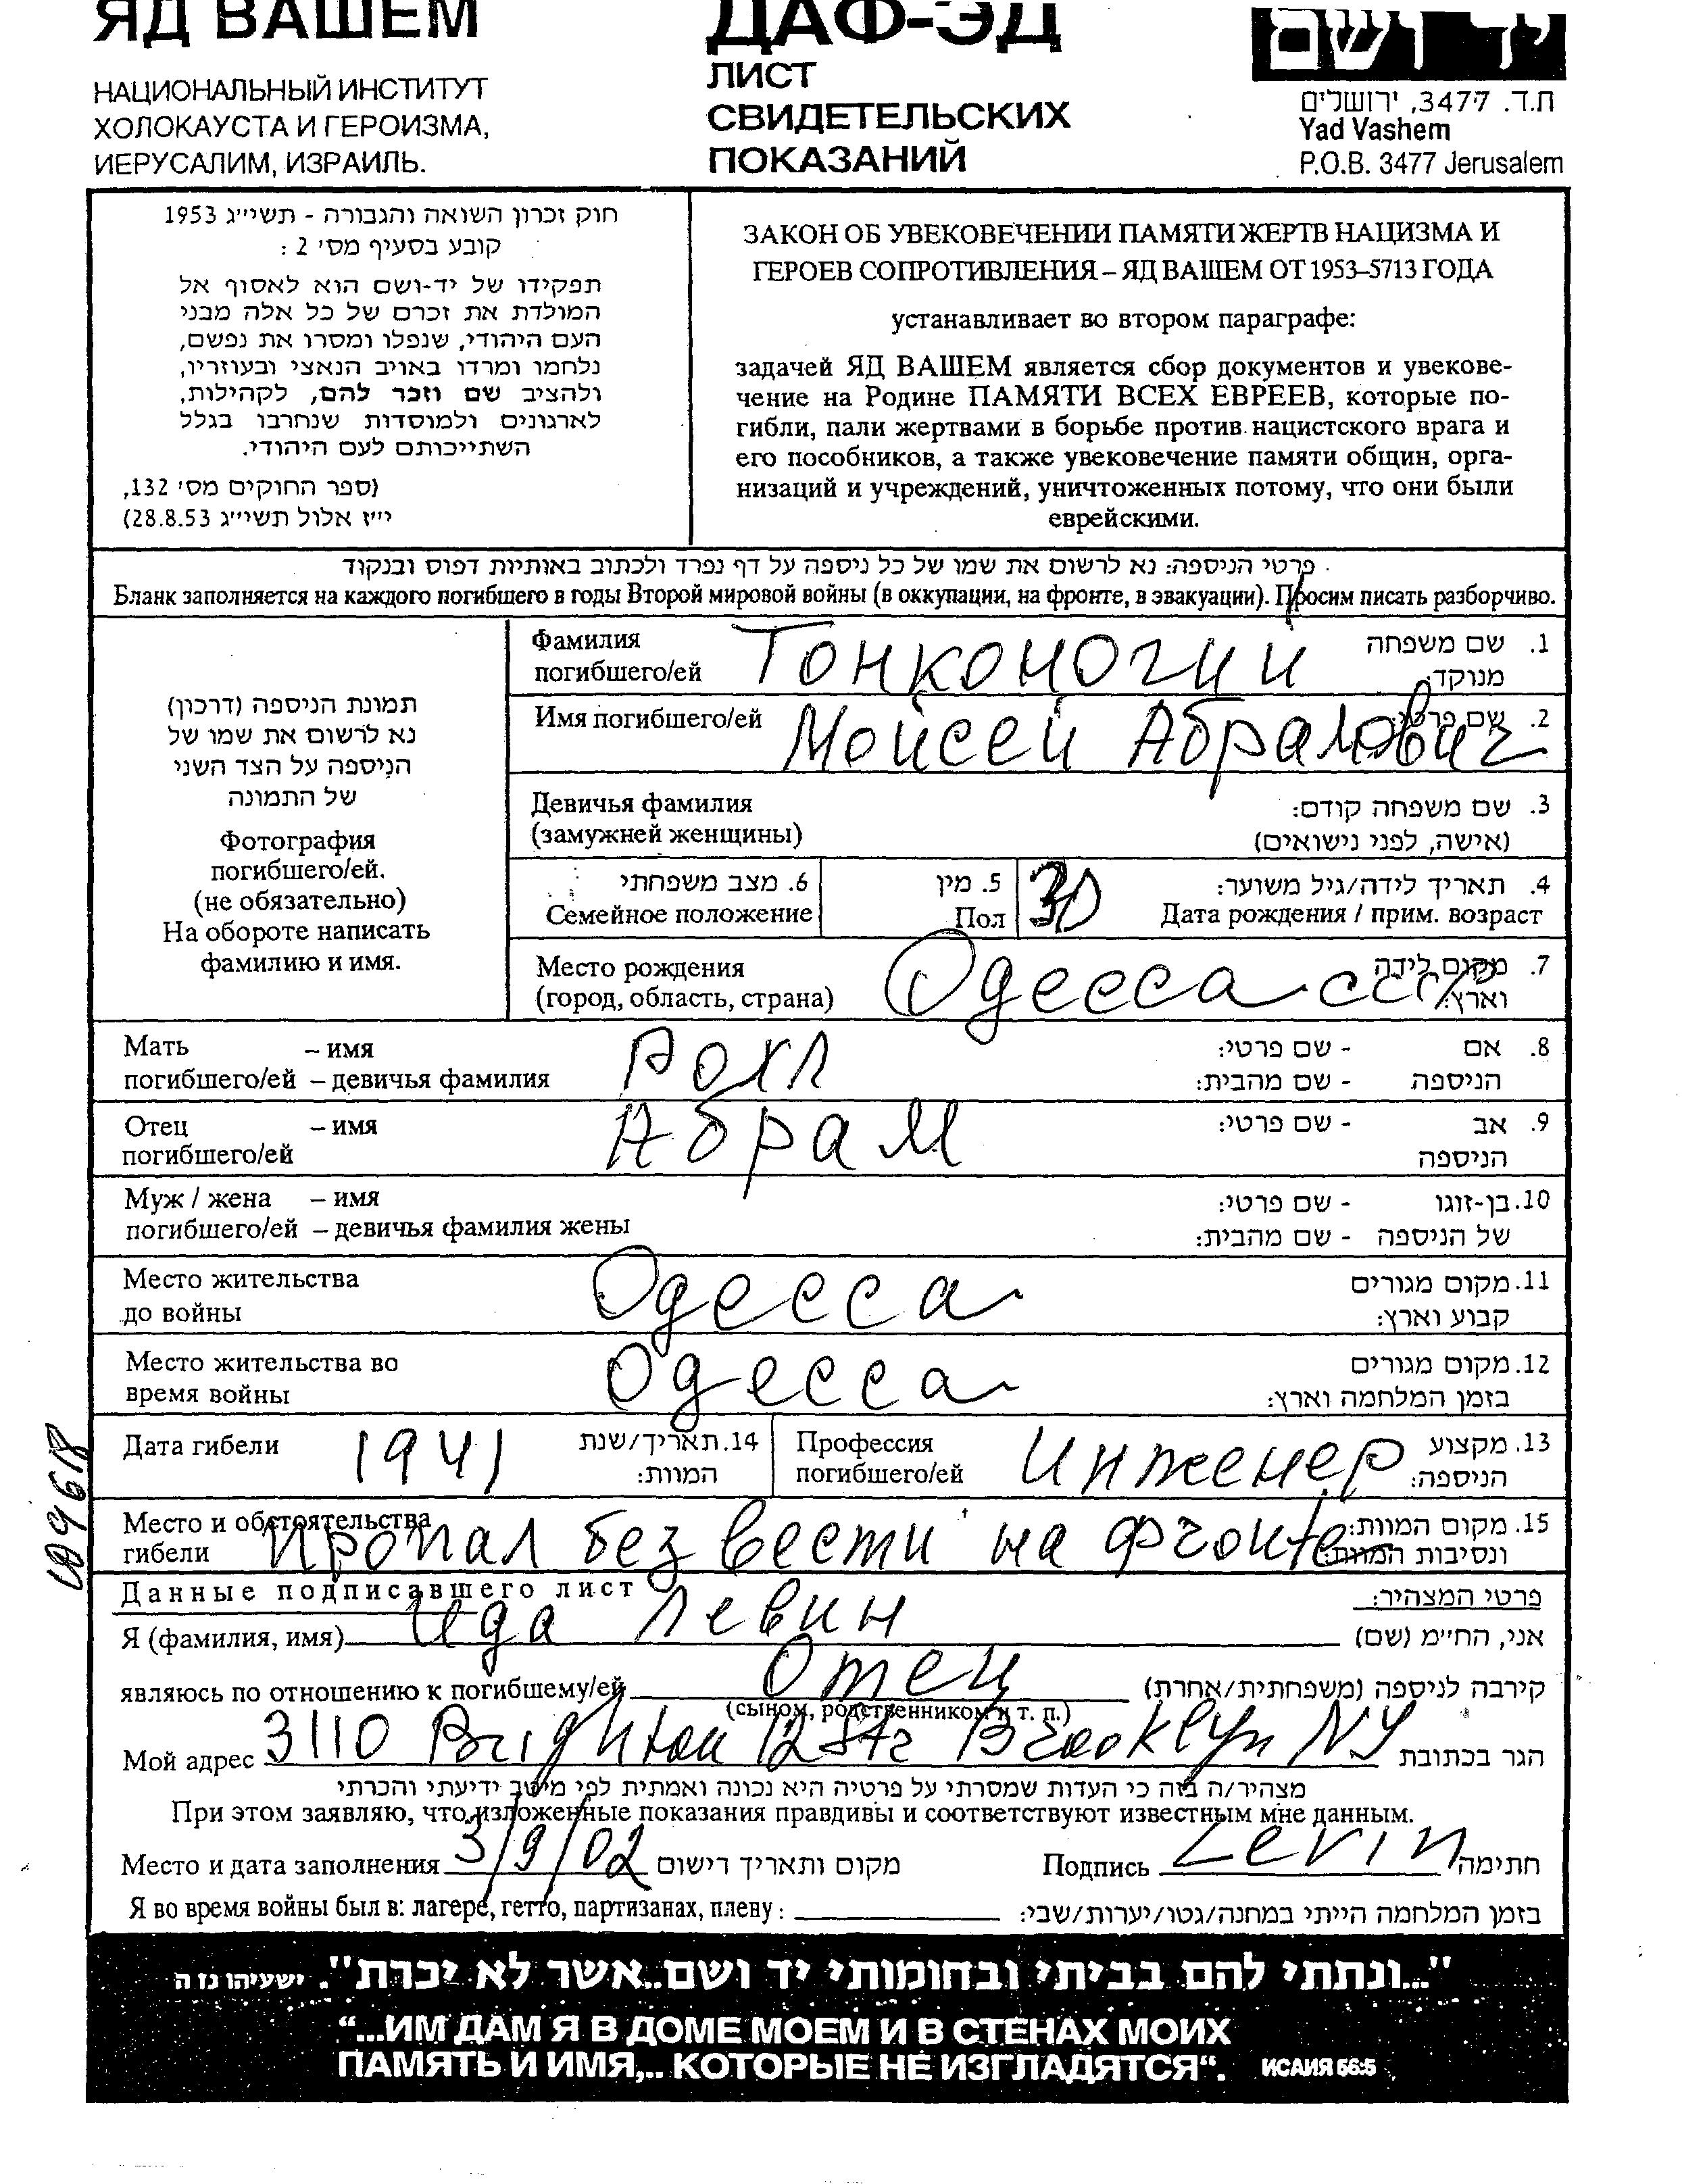 ЯД ВАШЕМ
НАЦИОНАЛЬНЫЙ ИНСТИТУТ
ХОЛОКАУСТА И ГЕРОИЗМА,
ИЕРУСАЛИМ, ИЗРАИЛЬ.
ДАФ-ЭД
ЛИСТ
СВИДЕТЕЛЬСКИХ
ПОКАЗАНИЙ
יד ושם
ת.ד. 3477, ירושלים
Yad Vashem
P.O.B. 3477 Jerusalem
חוק זכרון השואה והגבורה - תשי״ג 1953
קובע בסעיף מס׳ 2 :
תפקידו של יד-ושם הוא לאסוף אל
המולדת את זכרם של כל אלה מבני
העם היהודי, שנפלו ומסרו את נפשם,
נלחמו ומרדו באויב הנאצי ובעוזריו,
ולהציב שם וזכר להם, לקהילות,
לארגונים ולמוסדות שנחרבו בגלל
השתייכותם לעם היהודי.
(ספר החוקים מס׳ 132,
י״ז אלול תשי״ג 28.8.53)
ЗАКОН ОБ УВЕКОВЕЧЕНИИ ПАМЯТИ ЖЕРТВ НАЦИЗМА И
ГЕРОЕВ СОПРОТИВЛЕНИЯ – ЯД ВАШЕМ ОТ 1953–5713 ГОДА
устанавливает во втором параграфе:
задачей ЯД ВАШЕМ является сбор документов и увекове-
чение на Родине ПАМЯТИ ВСЕХ ЕВРЕЕВ, которые по-
гибли, пали жертвами в борьбе против нацистского врага и
его пособников, а также увековечение памяти общин, орга-
низаций и учреждений, уничтоженных потому, что они были
еврейскими.
פרטי הניספה: נא לרשום את שמו של כל ניספה על דף נפרד ולכתוב באותיות דפוס ובנקוד
Бланк заполняется на каждого погибшего в годы Второй мировой войны (в оккупации, на фронте, в эвакуации). Просим писать разборчиво.
תמונת הניספה (דרכון)
נא לרשום את שמו של
הניספה על הצד השני
של התמונה
Фотография
погибшего/ей.
(не обязательно)
На обороте написать
фамилию и имя.
Фамилия
погибшего/ей
Тонконогий
1. שם משפחה
מנוקד:
Имя погибшего/ей
Моисей Абрамович
2. שם פרטי:
Девичья фамилия
(замужней женщины)
3. שם משפחה קודם:
(אישה, לפני נישואים)
6. מצב משפחתי
Семейное положение
5. מין
Пол
30
4. תאריך לידה/גיל משוער:
Дата рождения / прим. возраст
Место рождения
(город, область, страна)
Одесса ссср
7. מקום לידה
וארץ:
Мать – имя
погибшего/ей – девичья фамилия
Рохл
8. אם - שם פרטי:
הניספה - שם מהבית:
Отец – имя
погибшего/ей
Абрам
9. אב - שם פרטי:
הניספה
Муж / жена – имя
погибшего/ей – девичья фамилия жены
10. בן-זוגו - שם פרטי:
של הניספה - שם מהבית:
Место жительства
до войны
Одесса
11. מקום מגורים
קבוע וארץ:
Место жительства во
время войны
Одесса
12. מקום מגורים
בזמן המלחמה וארץ:
Дата гибели
1941
14. תאריך/שנת
המוות:
Профессия
погибшего/ей
Инженер
13. מקצוע
הניספה:
Место и обстоятельства
гибели
пропал без вести на фронте
15. מקום המוות:
ונסיבות המוות:
Данные подписавшего лист
פרטי המצהיר:
Я (фамилия, имя) Ида Левин אני, החי״מ (שם)
являюсь по отношению к погибшему/ей Отец קירבה לניספה (משפחתית/אחרת)
(сыном, родственником и т. п.)
Мой адрес 3110 Brighton 12 Str Brooklyn NY הגר בכתובת
מצהיר/ה בזה כי העדות שמסרתי על פרטיה היא נכונה ואמתית לפי מיטב ידיעתי והכרתי
При этом заявляю, что изложенные показания правдивы и соответствуют известным мне данным.
Место и дата заполнения 3/9/02 מקום ותאריך רישום Подпись Levin חתימה
Я во время войны был в: лагере, гетто, партизанах, плену: בזמן המלחמה הייתי במחנה/גטו/יערות/שבי:
"...ונתתי להם בביתי ובחומותי יד ושם..אשר לא יכרת". ישעיהו נו ה
“...ИМ ДАМ Я В ДОМЕ МОЕМ И В СТЕНАХ МОИХ
ПАМЯТЬ И ИМЯ,.. КОТОРЫЕ НЕ ИЗГЛАДЯТСЯ“. ИСАИЯ 56:5